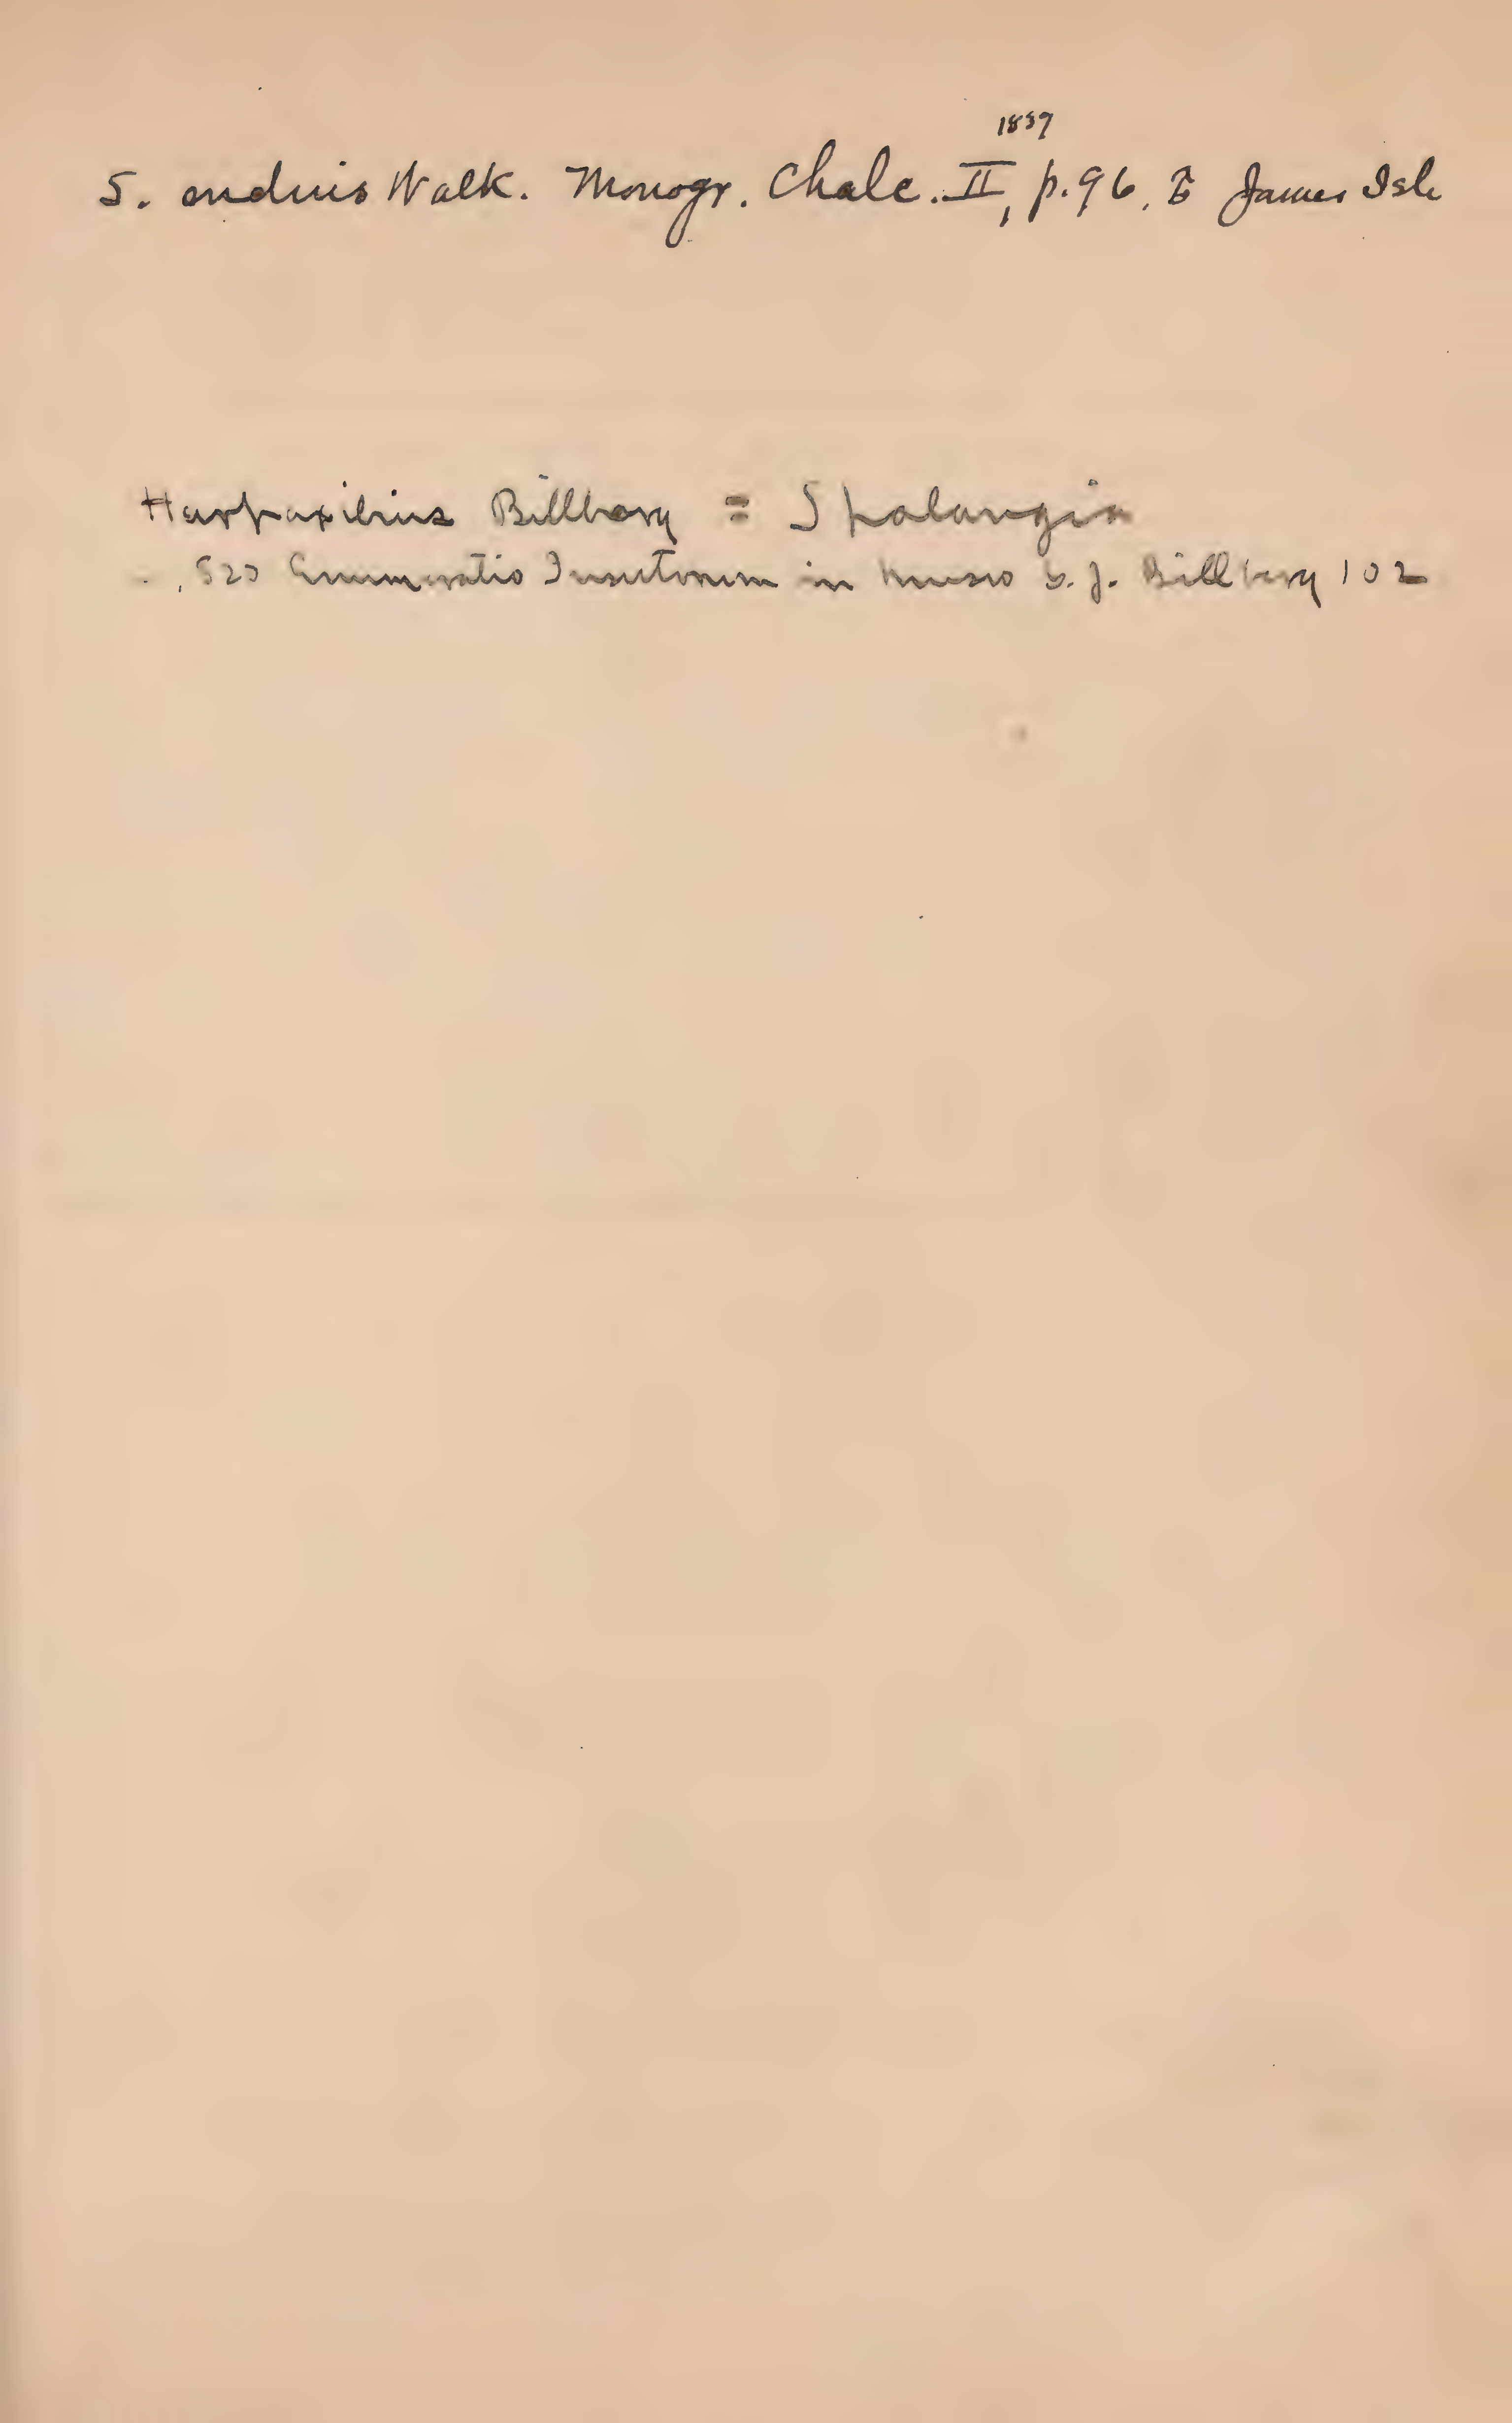 1839
S. endius Walk. Monogr. Chalc. II, p. 96, James Isle
Harpaxibius Billberg = Spalangia
Enumeratio Insectorum in Museo G. J. Billberg 102